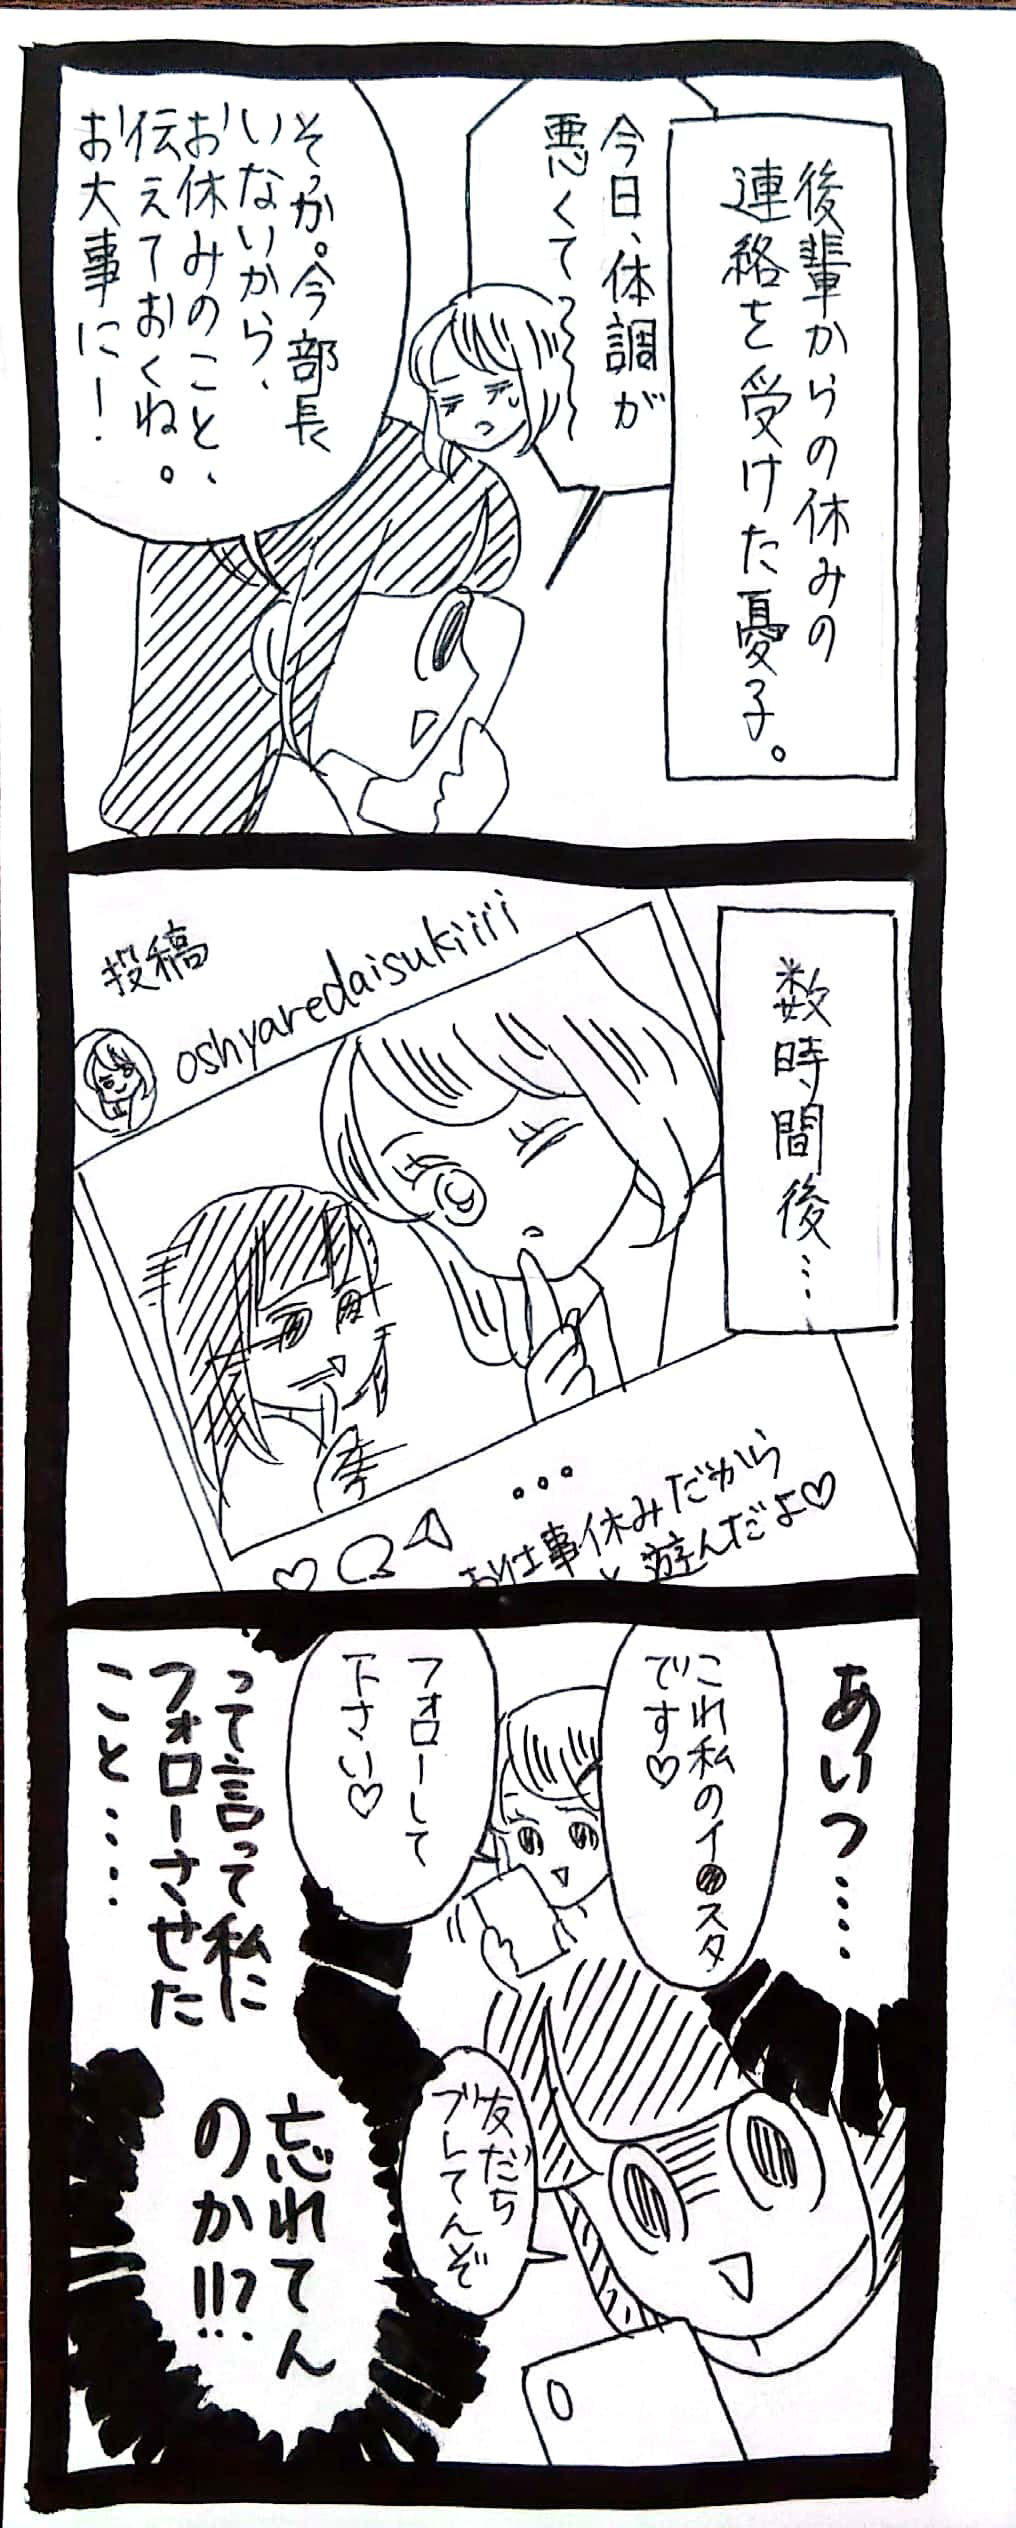 後輩からの休みの
連絡を受けた憂子。
今日、体調が
悪くて〜〜
そっか。今部長
いないから、
お休みのこと、
伝えておくね。
お大事に！
数時間後…
投稿
oshyaredaisukiiii
お仕事休みだから
と遊んだよ♡
あいつ……
これ私のイ●スタ
です♡
フォローして
下さい♡
って言って私に
フォローさせた
こと……
友だち
ブレてんぞ
忘れてん
のか!!?